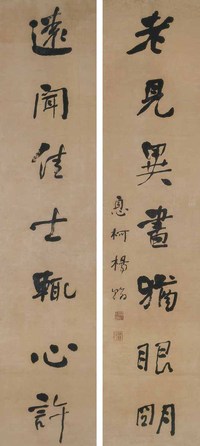 老見異書猶眼明
惠柯楊
遠聞佳士輒心許